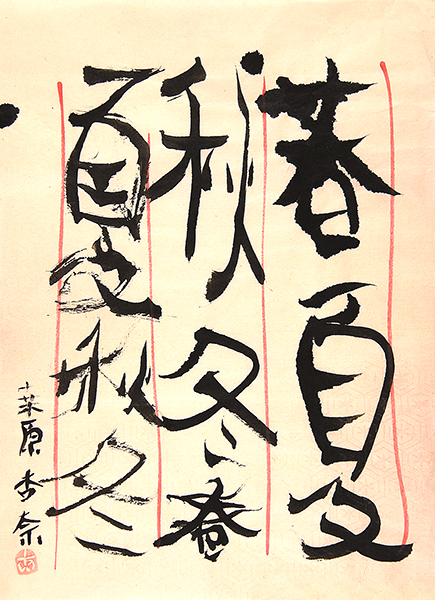 春夏
秋冬春
夏秋冬
桒原杏奈